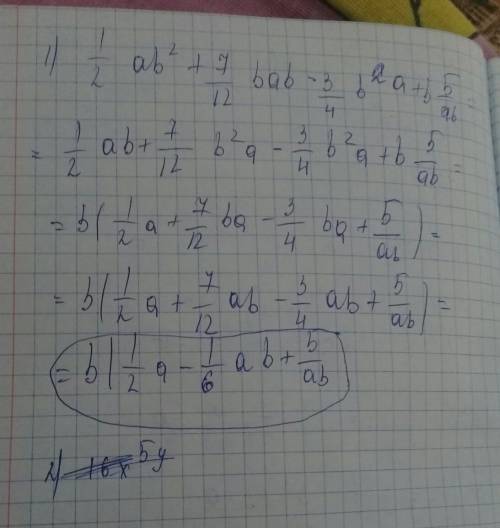 1) 1/2 ab² + 7/12 bab - 3/4 b²a + b 5/ab =
= 1/2 ab + 7/12 b²a - 3/4 b²a + b 5/ab =
= b(1/2 a + 7/12 ba - 3/4 ba + 5/ab) =
= b(1/2 a + 7/12 ab - 3/4 ab + 5/ab) =
= b(1/2 a - 1/6 ab + 5/ab
2) 5y